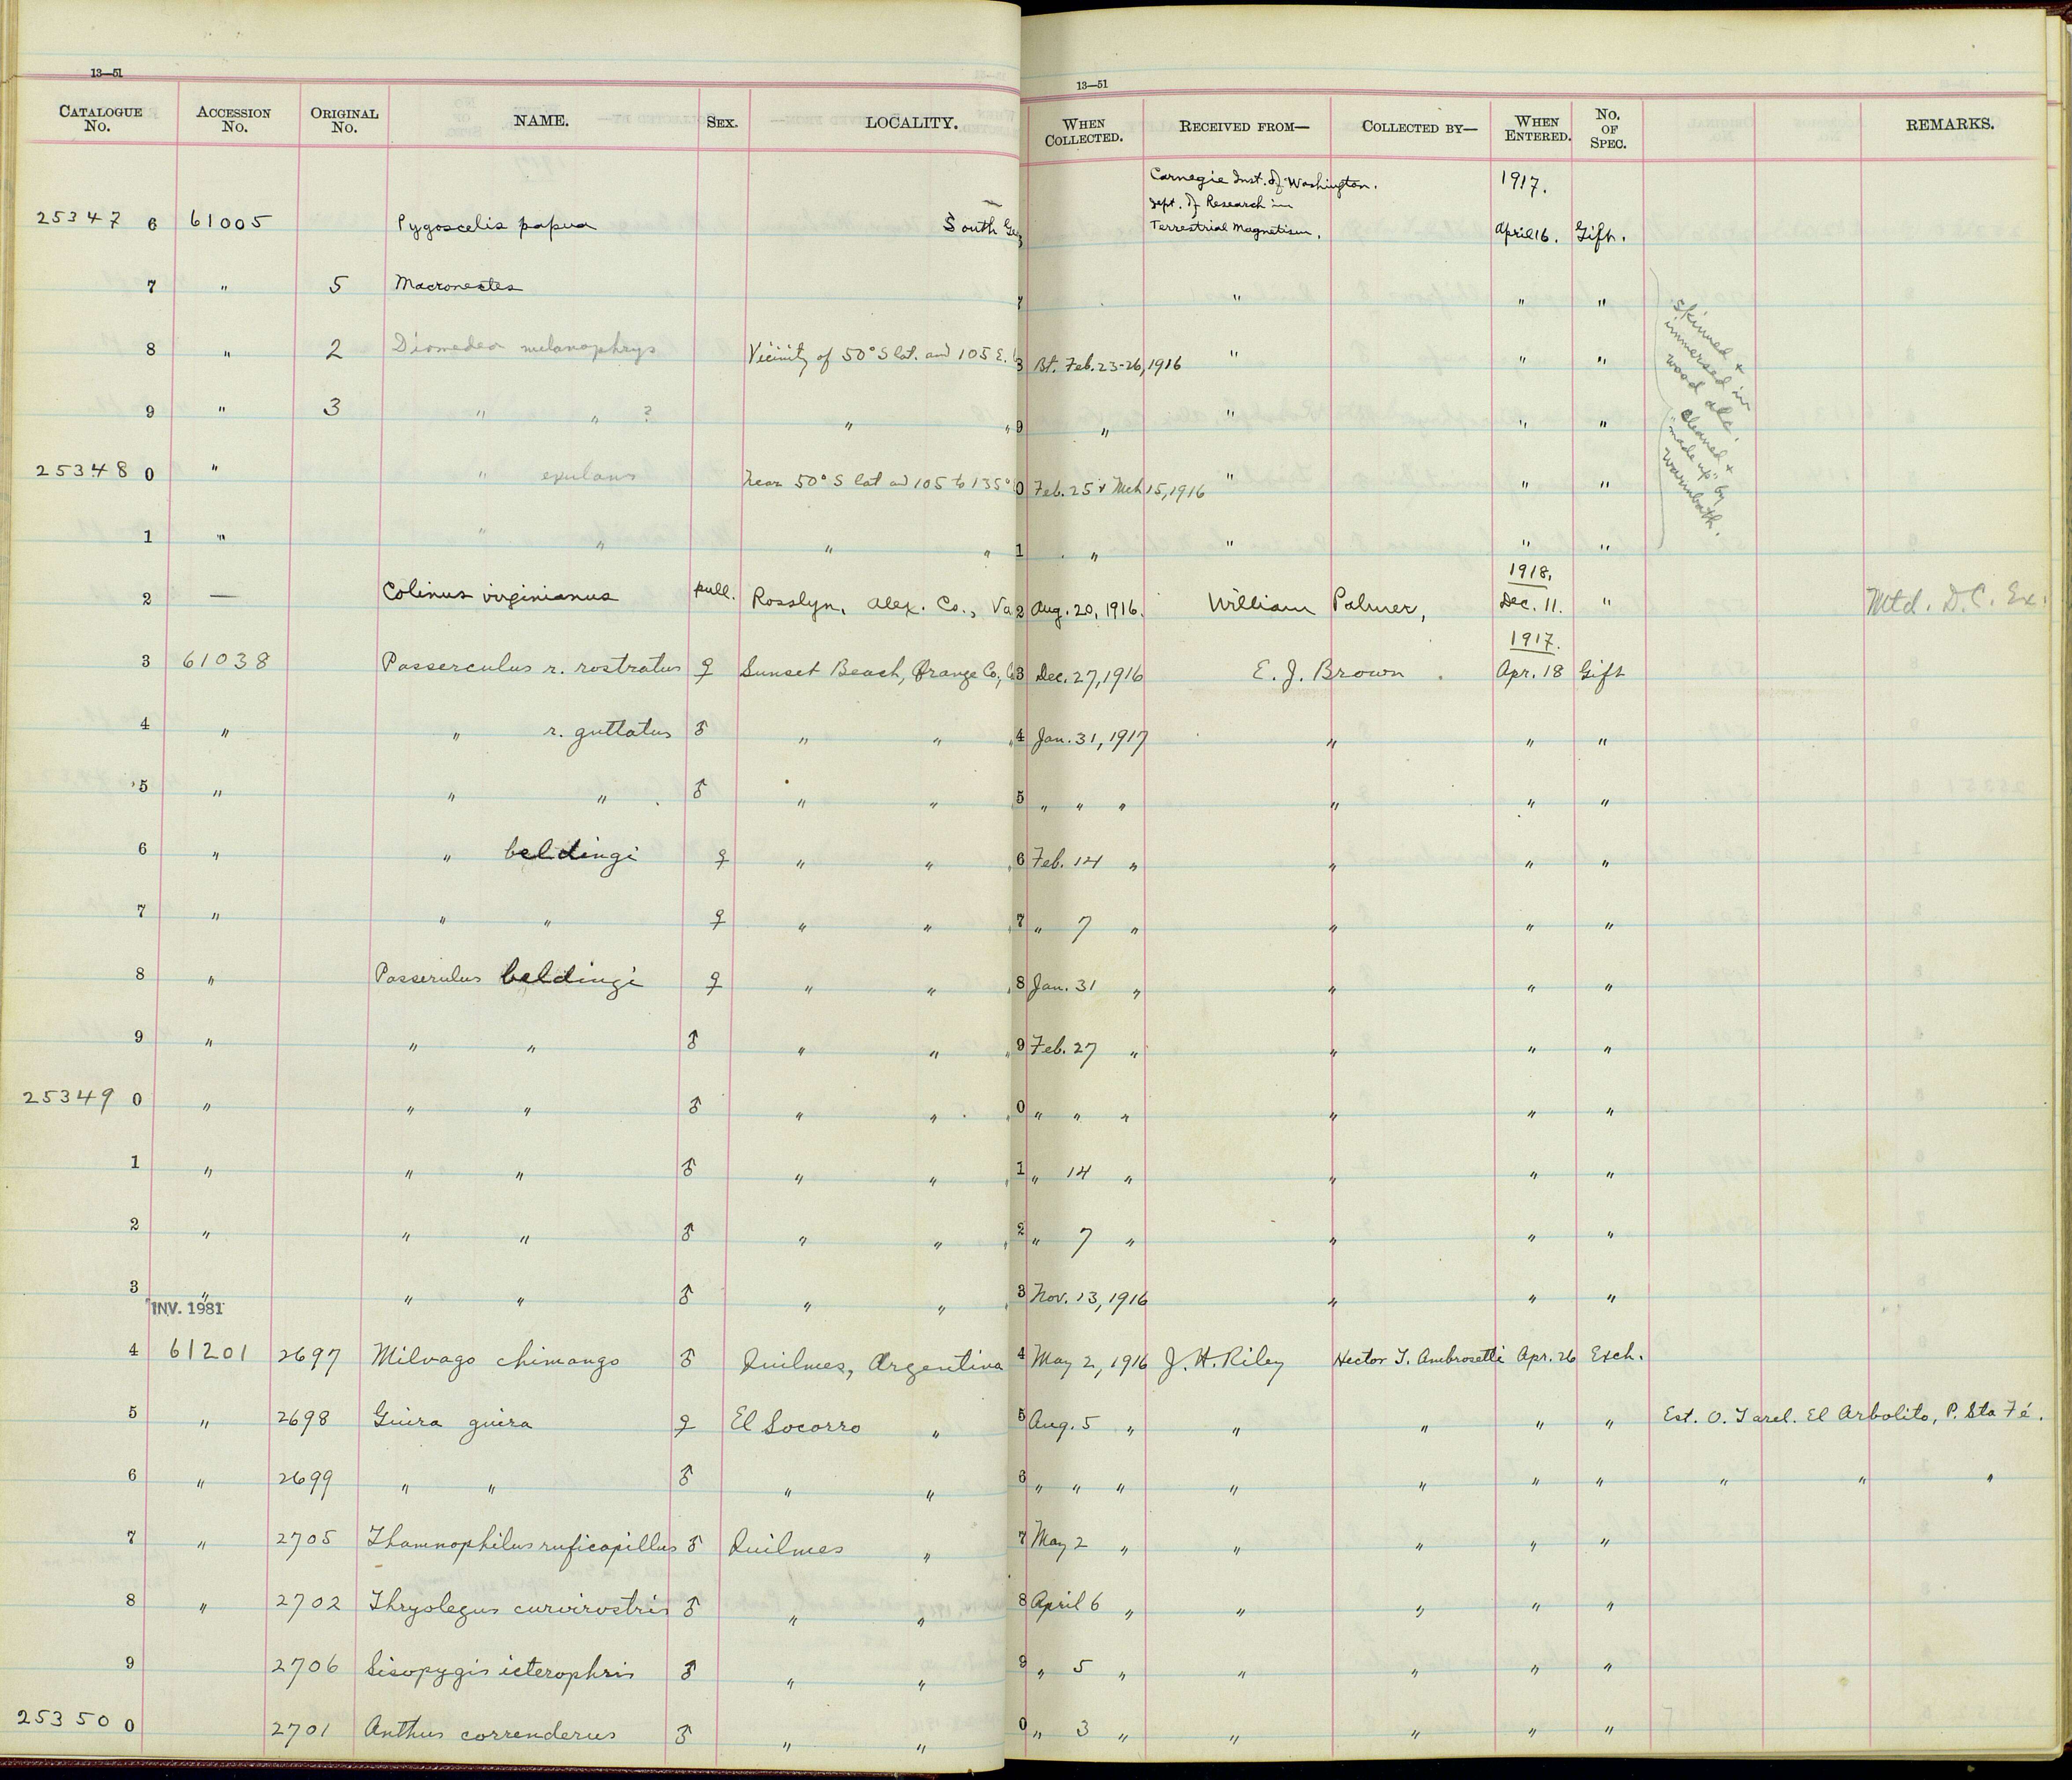 13—51
13—51
CATALOGUE No. ACCESSION No. ORIGINAL No. NAME. SEX. LOCALITY. WHEN COLLECTED. RECEIVED FROM— COLLECTED BY— WHEN ENTERED. No. OF SPEC. REMARKS.
Carnegie Inst. of Washington. 1917.
Dept. of Research in
25347 6 61005 Pygoscelis papua South Terrestrial Magnetism. April 16. Gift.
7 " 5 Macronectes 7 " " "
8 " 2 Diomedea melanophrys Vicinity of 50° S lat. and 105 E. 8 Bt. Feb. 23-26, 1916 " " "
9 " 3 " " ? " " 9 " " " "
25348 0 " " exulans near 50° S lat and 105 to 135° 0 Feb. 25 & Mch 15, 1916 " " "
1 " " " " " 1 " " " "
Skinned &
immersed in
wood alc.
Cleaned &
"made up" by
Warmbath.
1918.
2 — Colinus virginianus pull. Rosslyn, Alex. Co., Va 2 Aug. 20, 1916. William Palmer, Dec. 11. " Mtd. D.C. Ex.
1917.
3 61038 Passerculus r. rostratus ♀ Sunset Beach, Orange Co., 3 Dec. 27, 1916 E. J. Brown Apr. 18 Gift
4 " " r. guttatus ♂ " " " 4 Jan. 31, 1917 " " "
5 " " " ♂ " " " 5 " " " " " "
6 " " beldingi ♀ " " " 6 Feb. 14 " " " "
7 " " " ♀ " " " 7 " 7 " " " "
8 " Passerulus beldingi ♀ " " " 8 Jan. 31 " " " "
9 " " " ♂ " " " 9 Feb. 27 " " " "
25349 0 " " " ♂ " " " 0 " " " " " "
1 " " " ♂ " " " 1 " 14 " " " "
2 " " " ♂ " " " 2 " 7 " " " "
3 " " " ♂ " " " 3 Nov. 13, 1916 " " "
INV. 1981
4 61201 2697 Milvago chimango ♂ Quilmes, Argentina 4 May 2, 1916 J. H. Riley Hector T. Ambrosetti Apr. 26 Exch.
5 " 2698 Guira guira ♀ El Socorro " 5 Aug. 5 " " " " " Est. O. Tarel. El Arbolito, P. Sta Fé.
6 " 2699 " " ♂ " " 6 " " " " " " " " " "
7 " 2705 Thamnophilus ruficapillus ♂ Quilmes " 7 May 2 " " " " "
8 " 2702 Thryolegus curvirostris ♂ " " 8 April 6 " " " " "
9 2706 Sisopygis icterophris ♂ " " 9 " 5 " " " " "
25350 0 2701 Anthus correnderus ♂ " " 0 " 3 " " " " "